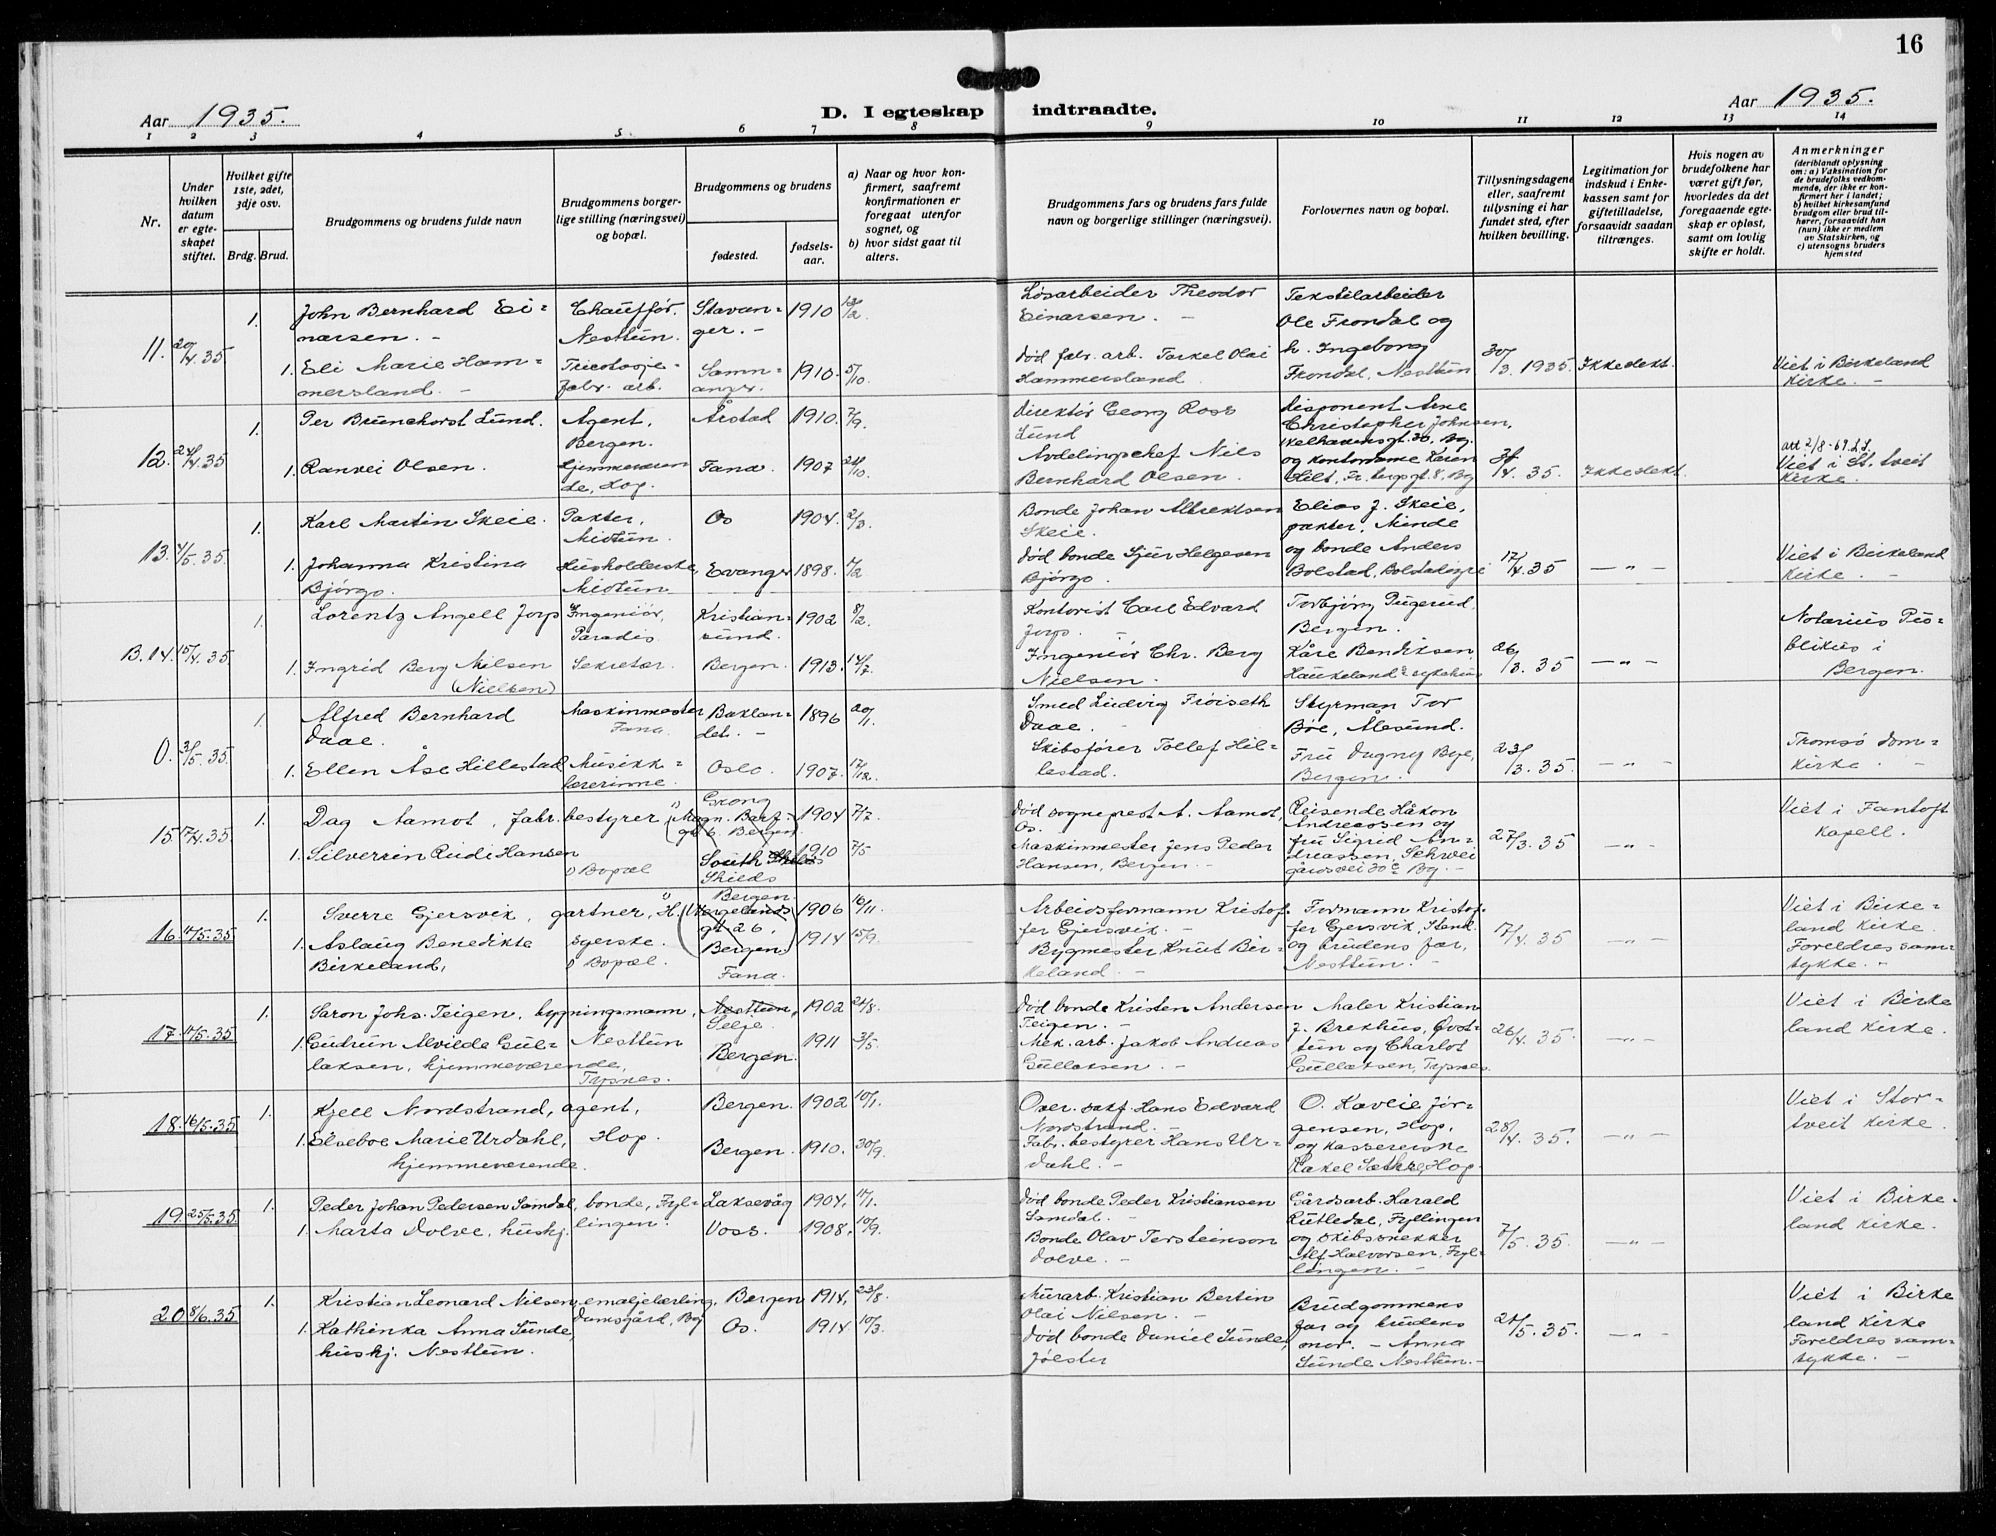 16
Aar 1935.
D. I egteskap indtraadte.
Aar 1935.
1 2 3 4 5 6 7 8 9 10 11 12 13 14
Nr.
Under hvilken datum er egteskapet stiftet.
Hvilket gifte 1ste, 2det, 3dje osv.
Brdg. Brud.
Brudgommens og brudens fulde navn
Brudgommens borgerlige stilling (næringsvei) og bopæl.
Brudgommens og brudens
fødested.
fødselsaar.
a) Naar og hvor konfirmert, saafremt konfirmationen er foregaat utenfor sognet, og
b) hvor sidst gaat til alters.
Brudgommens fars og brudens fars fulde navn og borgerlige stillinger (næringsvei).
Forlovernes navn og bopæl.
Tillysningsdagene eller, saafremt tillysning ei har fundet sted, efter hvilken bevilling.
Legitimation for indskud i Enkekassen samt for giftetilladelse, forsaavidt saadan tiltrænges.
Hvis nogen av brudefolkene har været gift før, hvorledes da det foregaaende egteskap er opløst, samt om lovlig skifte er holdt.
Anmerkninger
(deriblandt oplysning om: a) Vaksination for de brudefolks vedkommende, der ikke er konfirmert her i landet; b) hvilket kirkesamfund brudgom eller brud tilhører, forsaavidt han (hun) ikke er medlem av Statskirken, og c) utensogns bruders hjemsted
11. 20/4. 35
1. John Bernhard Einarsen. - Chauffør. Nesttun. Stavanger. - 1910 Løsarbeider Theodor Einarsen. - Tekstilarbeider Ole Frondal og h. Ingeborg Frondal, Nesttun 30/3. 1935. Ikke dekt.
1. Eli Marie Hammersland. - Tricotasjefabr. arb. Samnanger. 1910. 5/10. død fabr. arb. Torkel Olai Hammersland. Viet i Birkeland Kirke. -
12. 24/4. 35
1. Per Brunchorst Lund. Agent, Bergen. Årstad 1910. 7/9. Direktør Georg Ross Lund Disponent Arne Christopher Johnsen, og kontordame Karen Hilt, 35. Ikke dekt.
1. Ranvei Olsen. Hjemmeværende, Hop. Fana. 1907 Avdelingschef Nils Bernhard Olsen. att 2/8-69. Viet i St. tveit Kirke.
13. 4/5. 35
1. Karl Martin Skeie. Midtun. Os 1904. 2/3. Bonde Johan Albrektsen Skeie. Elias J. Skeie, Minde og bonde Anders Bolstad, 17/4. 35 — " —
1. Johanna Kristina Bjørgo. Husholderske, Midtun Evanger 1898. død bonde Sjur Helgesen Bjørgo. Viet i Birkeland Kirke. -
B. 14. 15/4. 35.
1. Lorentz Angell Jorp Ingeniør, Paradis Kristiansund. 1902 8/2. Kontorist Carl Edvard Jorp. - Bergen. Kåre Bendiksen, Haukeland sykehus 26/3. 35 — " —
1. Ingrid Berg Nilsen (Nielsen) Sekretær. Bergen. 1913. 14/7. Ingeniør Chr. Berg Nielsen. Notarius Publikus i Bergen.
0. 35.
1. Alfred Bernhard Daae. Maskinmester Fana. Baklandet. - 1896 20/1. Smed Ludvig Frøiseth Daae. Styrman Tor Bøe, Ålesund. Fru Dagny Bye, Bergen. 23/3. 35. — " —
1. Ellen Åse Hillestad Musikklærerinne. Oslo. 1907. 17/12. Skibsfører Tollef Hillestad. Tromsø Domkirke. -
15. 17/4. 35.
1. Dag Aamot, fabr. bestyrer Grong 1904 7/7. død sogneprest A. Aamot, Os. Reisende Håkon Andreassen og fru Sigrid Andreassen, 27/3. 35 — " —
1. Silverrin Rudi Hansen Bopæl South Shields 1910 7/5 Maskinmester Jens Peder Hansen, Bergen. - Viet i Fantoft Kapell.
16. 11/5. 35
1. Sverre Gjersvik, gartner, (H. Wergelandsgt 26, Bergen) Bergen. 1906 16/11. Arbeidsformann Kristoffer Gjersvik. - Formann Kristoffer Gjersvik, og brudens far, Nesttun. - 35 — " —
1. Aslaug Benedikte Birkeland, Syerske. Bopæl. Fana. 1914 15/9. Bygmester Knut Birkeland. - Viet i Birkeland Kirke. Foreldres samtykke. -
17. 11/5. 35
1. Saron Johs. Teigen, bygningsmann, Nesttun, Selje. 1902 død bonde Kristen Andersen Teigen. - Maler Kristian J. Brekhus, Øvsttun og Charlot Gullaksen, Tysnes. 26/4. 35. — " —
1. Gudrun Alvilde Gullaksen, hjemmeværende, Tysnes. Nesttun Bergen. 1911 3/5. Mek. arb. Jakob Andreas Gullaksen. - Viet i Birkeland Kirke.
18. 16/5. 35
1. Kjell Nordstrand, agent, Hop. Bergen. 1902 10/1. Hans Edvard Nordstrand. - O. Kavlie Jørgensen, Hop, og kassererske Rakel Sæthre, Hop. 28/4. 35. — " —
1. Elseboe Marie Urdahl, hjemmeværende. Bergen. 1910. 30/9. Fabr. bestyrer Hans Urdahl. - Viet i Stortveit Kirke.
19. 25/5. 35
1. Peder Johan Pedersen Samdal, bonde, Fyllingen. Laksevåg 1904. død bonde Peder Kristiansen Samdal. - Gårdsarb. Harald Rutledal, Fyllingen og skibssnekker Alf Halvorsen, Fyllingen. - 7/5. 35. — " —
1. Marta Dolve, hushj. Voss. 1908. 10/9. Bonde Olav Torsteinson Dolve. - Viet i Birkeland Kirke.
20. 8/6. 35
1. Kristian Leonard Nilsen, emaljelærling, Damsgård, Bg. Bergen 1914. 23/8. Murarb. Kristian Bertin Olai Nilsen. - Brudgommens far og brudens mor. - Anna Sunde Nesttun. - 35. — " —
1. Kathinka Anna Sunde, hushj. Nesttun. Os. 1914 10/3. død bonde Daniel Sunde, Jølster Viet i Birkeland Kirke Foreldres samtykke. -